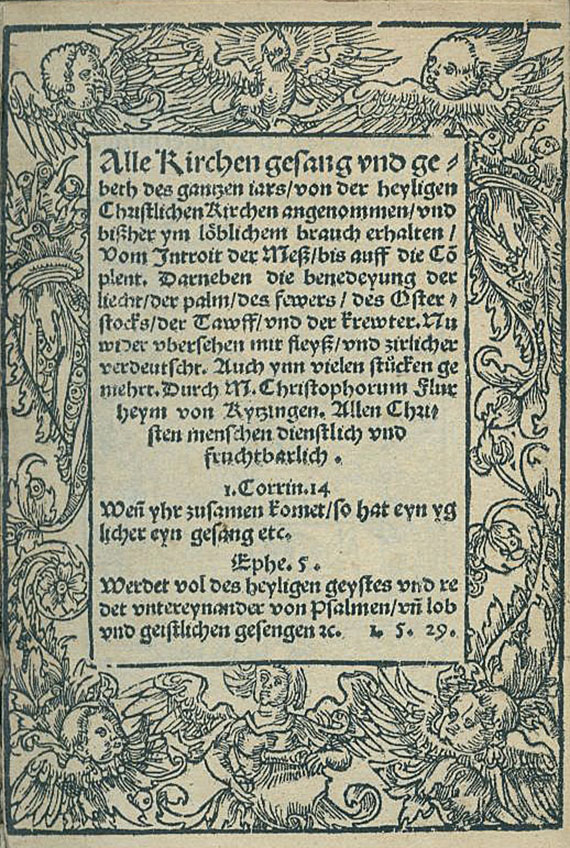 Alle Kirchen gesang vnd ge⸗
beth des gantzen iars/von der heyligen
Christlichen Kirchen angenommen/vnd
bißher ym löblichem brauch erhalten/
Vom Introit der Meß/bis auff die Cō
plent. Darneben die benedeyung der
liecht/der palm/des fewers/des Oster⸗
stocks/der Tawff/vnd der krewter. Nu
wider vbersehen mit fleyß/vnd zirlicher
verdeutscht. Auch ynn vielen stücken ge
mehrt. Durch M. Christophorum Flur
heym von Kytzingen. Allen Chri⸗
sten menschen dienstlich vnd
fruchtbarlich.
1. Corrin. 14
Wen̄ yhr zusamen komet/so hat eyn yg
licher eyn gesang etc.
Ephe. 5.
Werdet vol des heyligen geystes vnd re
det vntereynander von Psalmen/vn̄ lob
vnd geistlichen gesengen ꝛc. 1. 5. 29.